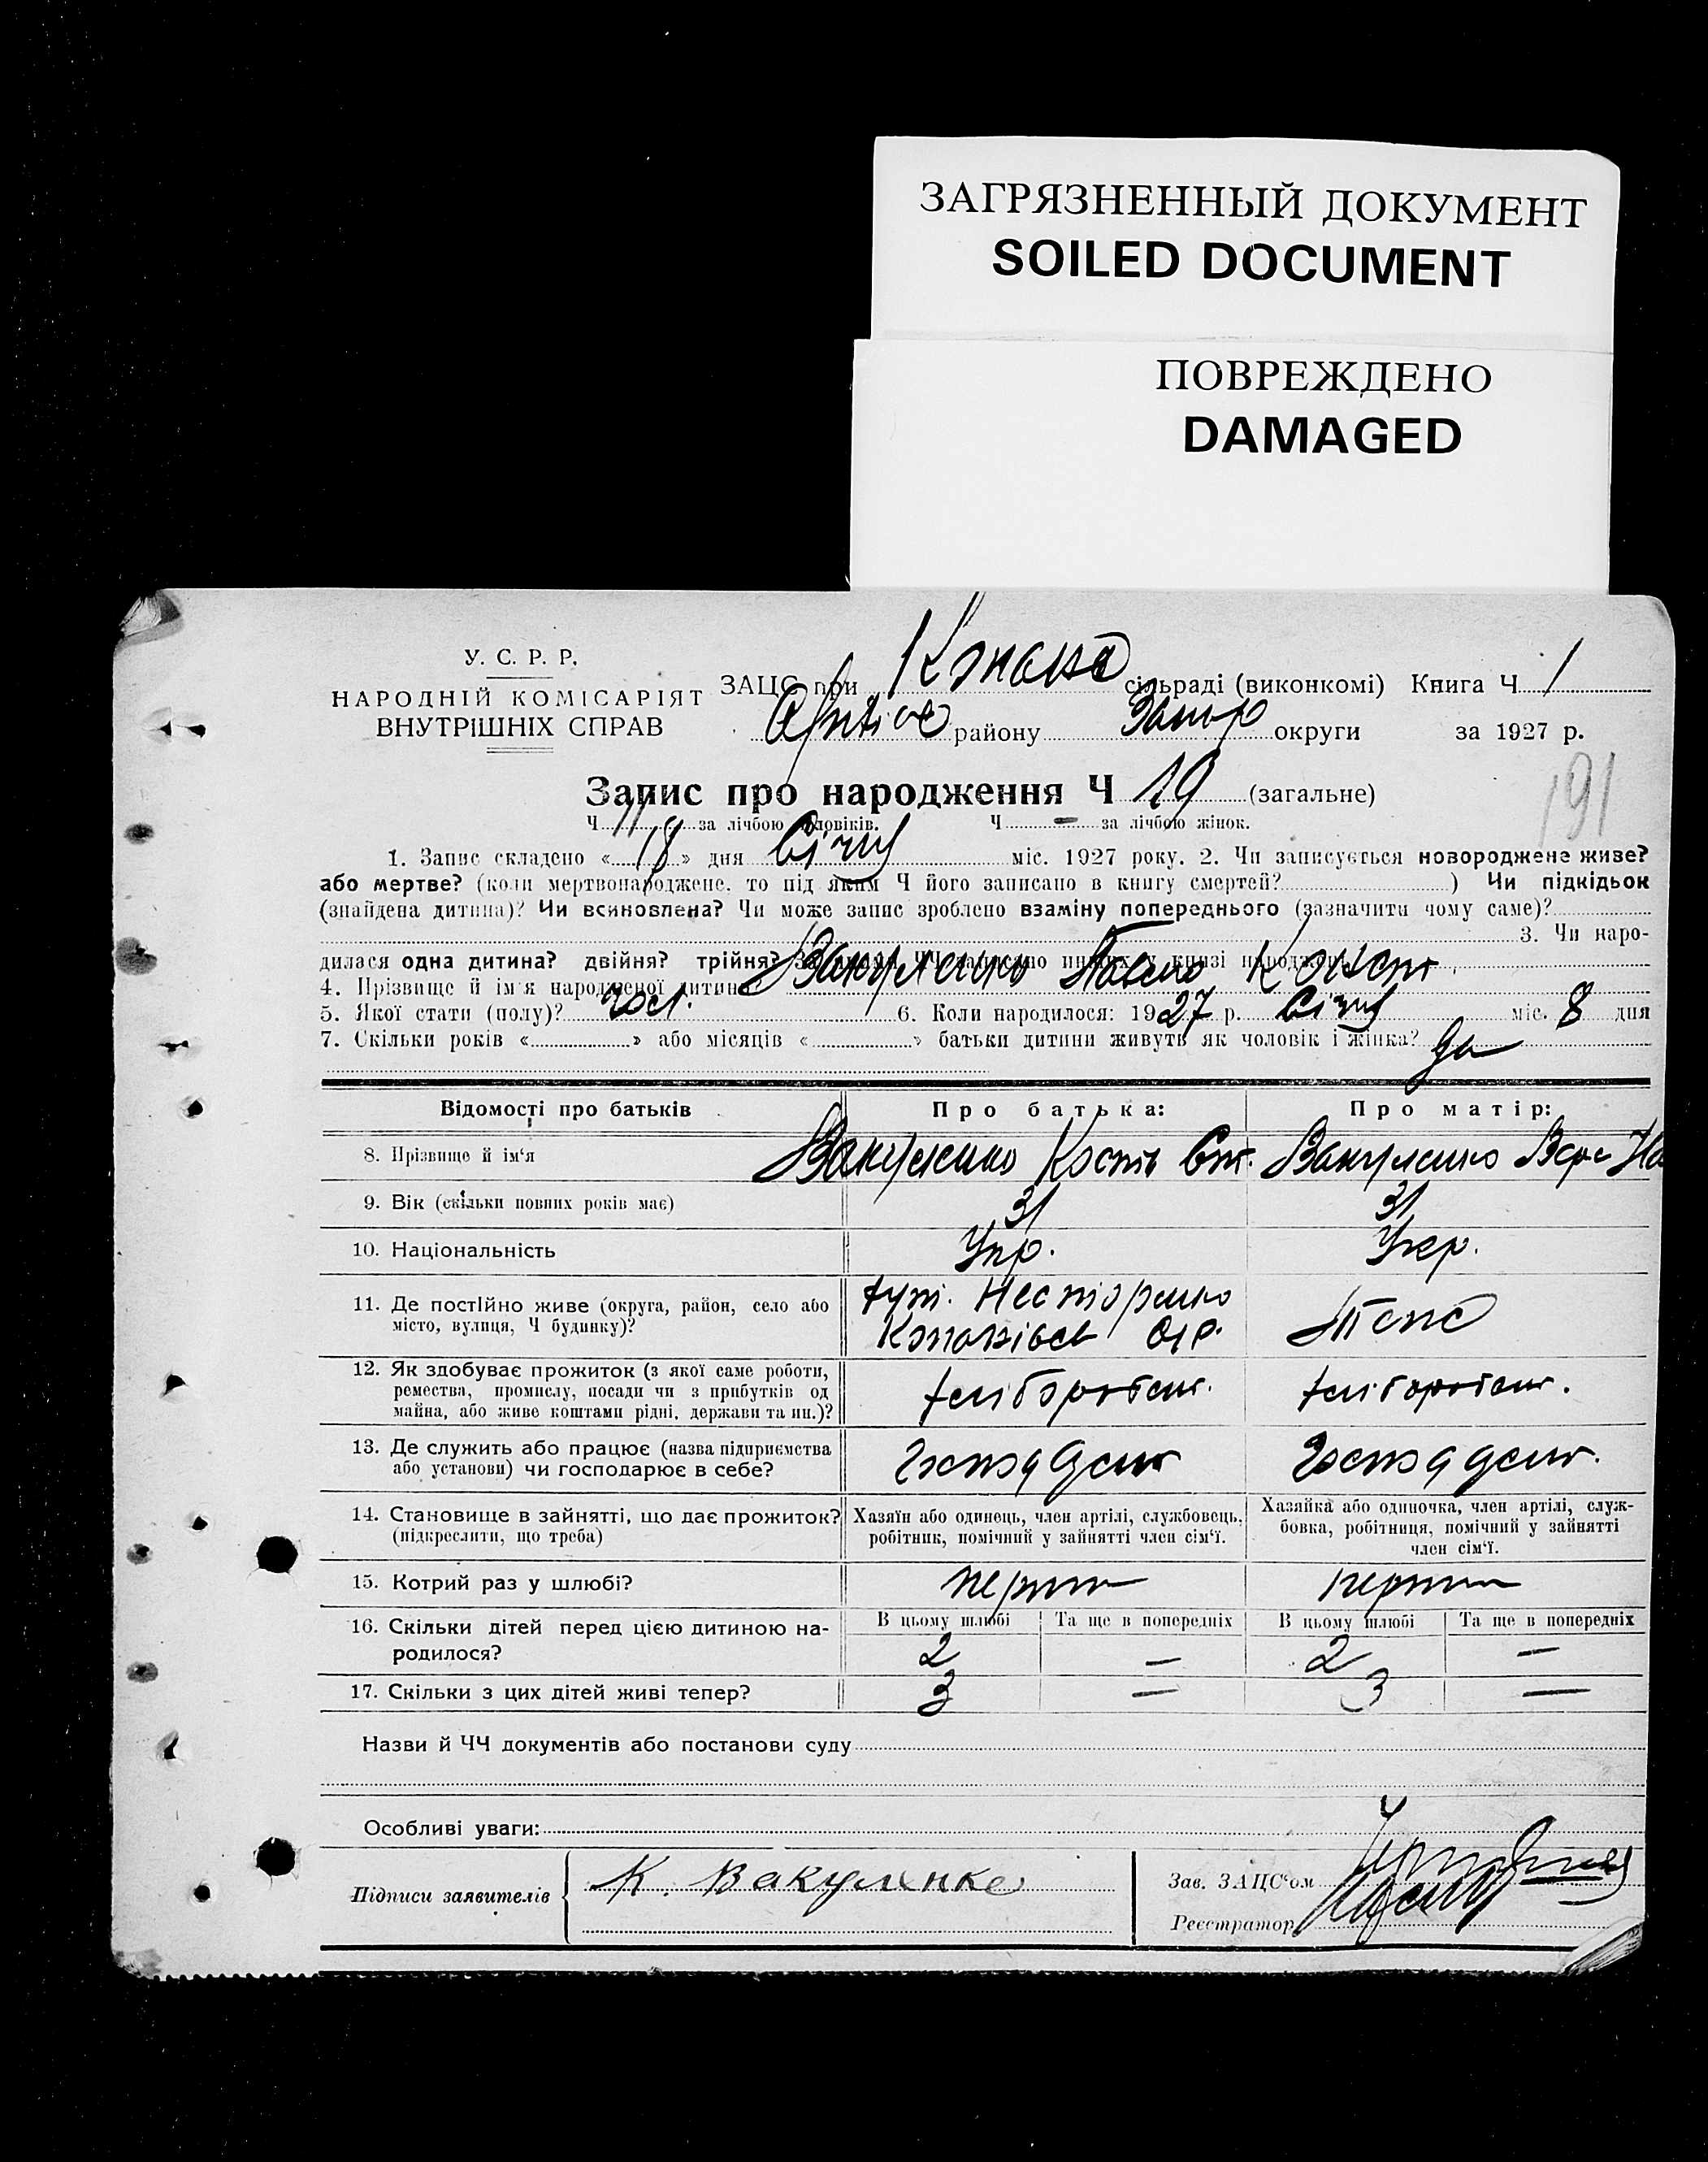 ЗАГРЯЗНЕННЫЙ ДОКУМЕНТ
SOILED DOCUMENT
ПОВРЕЖДЕНО
DAMAGED
У. С. Р. Р.
НАРОДНІЙ КОМІСАРІЯТ
ВНУТРІШНІХ СПРАВ
ЗАЦС при сільраді (виконкомі) Книга Ч 1
району Запор округи за 1927 р.
191
Запис про народження Ч 19 (загальне)
Ч 11 за лічбою чоловіків. Ч — за лічбою жінок.
1. Запис складено « 18 » дня Січня міс. 1927 року. 2. Чи записується новороджене живе?
або мертве? (коли мертвонароджене, то під яким Ч його записано в книгу смертей? ) Чи підкідьок
(знайдена дитина)? Чи всиновлена? Чи може запис зроблено взаміну попереднього (зазначити чому саме)?
3. Чи наро-
дилася одна дитина? двійня? трійня? За якими ЧЧ записано инших у книзі народжень
4. Прізвище й ім'я народженої дитини Вакуленко Павло Конст
5. Якої стати (полу)? чол. 6. Коли народилося: 1927 р. Січня міс. 8 дня
7. Скільки років « » або місяців « » батьки дитини живуть як чоловік і жінка? да
Відомості про батьків Про батька: Про матір:
8. Прізвище й ім'я Вакуленко Кость Вакуленко Вера
9. Вік (скільки повних років має) 31 31
10. Національність Укр. Укр.
11. Де постійно живе (округа, район, село або місто, вулиця, Ч будинку)?
хут. Несторенко
12. Як здобуває прожиток (з якої саме роботи,
ремества, промислу, посади чи з прибутків од
майна, або живе коштами рідні, держави та ин.)?
хліборобст. хліборобст.
13. Де служить або працює (назва підприємства
або установи) чи господарює в себе?
14. Становище в зайнятті, що дає прожиток?
(підкреслити, що треба)
Хазяїн або одинець, член артілі, службовець,
робітник, помічний у зайнятті член сім'ї.
Хазяйка або одиночка, член артілі, служ-
бовка, робітниця, помічний у зайнятті
член сім'ї.
15. Котрий раз у шлюбі?
16. Скільки дітей перед цією дитиною на-
родилося?
В цьому шлюбі Та ще в попередніх В цьому шлюбі Та ще в попередніх
2 — 2 —
17. Скільки з цих дітей живі тепер? 3 — 3 —
Назви й ЧЧ документів або постанови суду
Особливі уваги:
Підписи заявителів К. Вакуленко
Зав. ЗАЦС'ом
Реєстратор